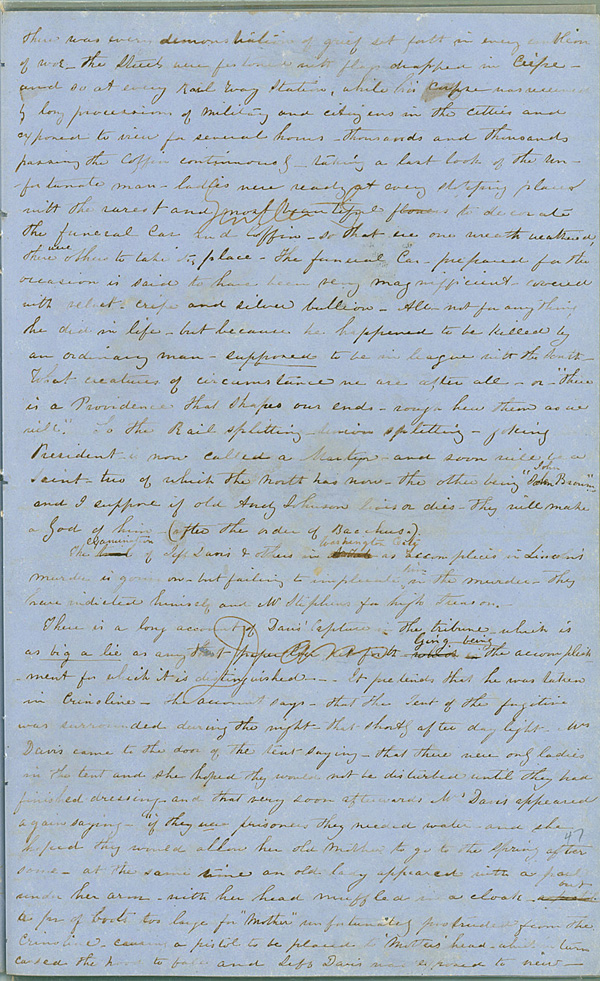 there was every demonstration of grief set forth in every
of woe - the Streets were festooned with flags drapped in Crépe -
and so at every Rail Way Station, while his Corpse was received
by long processions of Military and citizens in the citties and
exposed to view for several hours - thousands and thousands
passing the Coffin continuously - taking a last look of the un-
fortunate man - ladies were ready at every stopping place
with the rarest and most beautiful flowers to decorate
the funeral Car and Coffin - so that ere one wreath withered,
there were others to take its place - the funeral Car - prepared for the
occasion is said to have been very magnifficient - covered
with velvet - crépe and silver bullion - All - not for any thing
he did in life - but because he happened to be killed by
an ordinary man - supposed to be in league with the South -
What creatures of circumstance we are after all - or - "there
is a Providence that shapes our ends - rough hew them as we
will." So the Rail splitting - Union splitting - joking
President is now called a Martyr - and soon will be a
Saint - two of which the North has now - the other being "John Brown" -
and I suppose if old Andy Johnson lives or dies - they will make
a God of him (after the order of Bacchus)
The examination of Jeff Davis & others in Washington City as accomplices in Lincoln's
murder is going on - but failing to implicate him in the murder - they
have indicted himself and Mr Stephens for high treason. -
There is a long account of Davis' Capture in the tribune - which is
as big a lie as any that paper ever set forth Going being the accomplish-
ment for which it is distinguished - - It pretends that he was taken
in Crinoline - the account says - that the Tent of the fugitive
was surrounded during the night - that shortly after day light - Mrs
Davis came to the door of the tent saying - that there were only ladies
in the tent and she hoped they would not be disturbed until they had
finished dressing - and that very soon afterwards Mrs Davis appeared
again saying - "if they were prisoners they needed water - and she
hoped they would allow her old Mother to go to the Spring after
47
some - at the same time an old lady appeared with a pail
under her arm - with her head muffled in a cloak - but
a pr of boots too large for "Mother" unfortunately protruded from the
Crinoline - causing a pistol to be placed to Mother's head - which in turn
caused the hood to fall and Jeff Davis was exposed to view -